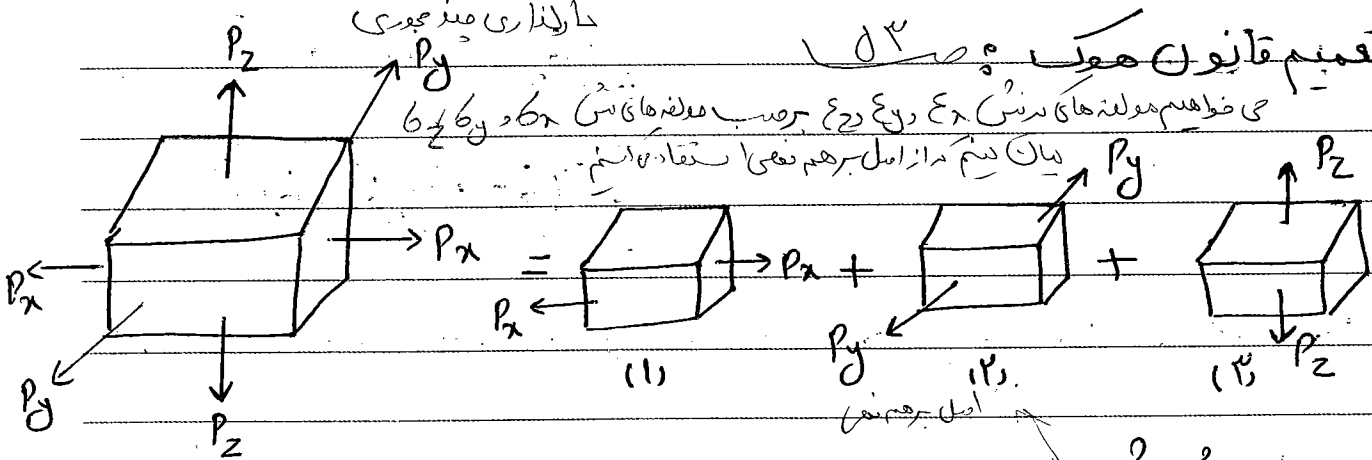 بارگذاری چند محوری
تعمیم قانون هوک :
می خواهیم مولفه های کرنش εx و εy و εz برحسب مولفه های تنش σx و σy و σz
بیان کنیم که از اصل برهم نهی استفاده می‌کنیم.
Pz Py
Px Px = Px Px + Py Py + Pz Pz
Py Pz
(۱) (۲) (۳)
اصل برهم نهی